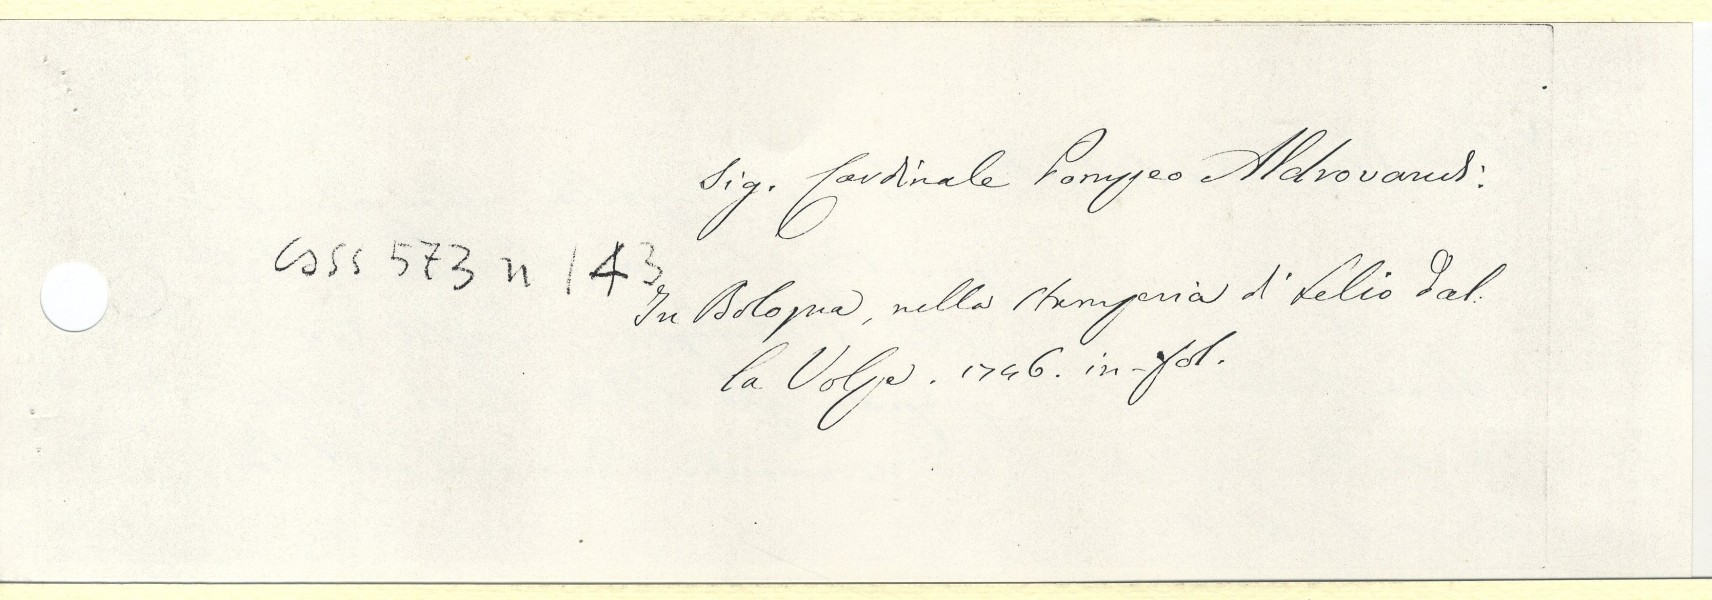 Sig. Cardinale Pompeo Aldrovandi:
Cass 573 n 143
In Bologna, nella stamperia di Lelio Dal.
la Volpe. 1746. in-fol.